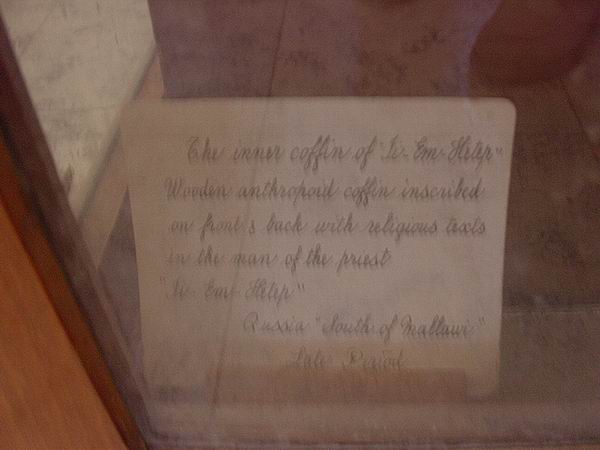 The inner coffin of "Ii-Em-Hetep"
Wooden anthropoid coffin inscribed
on front & back with religious texts
in the nan of the priest
"Ii-Em-Hetep"
Qussia "South of Mallawi"
Late Period